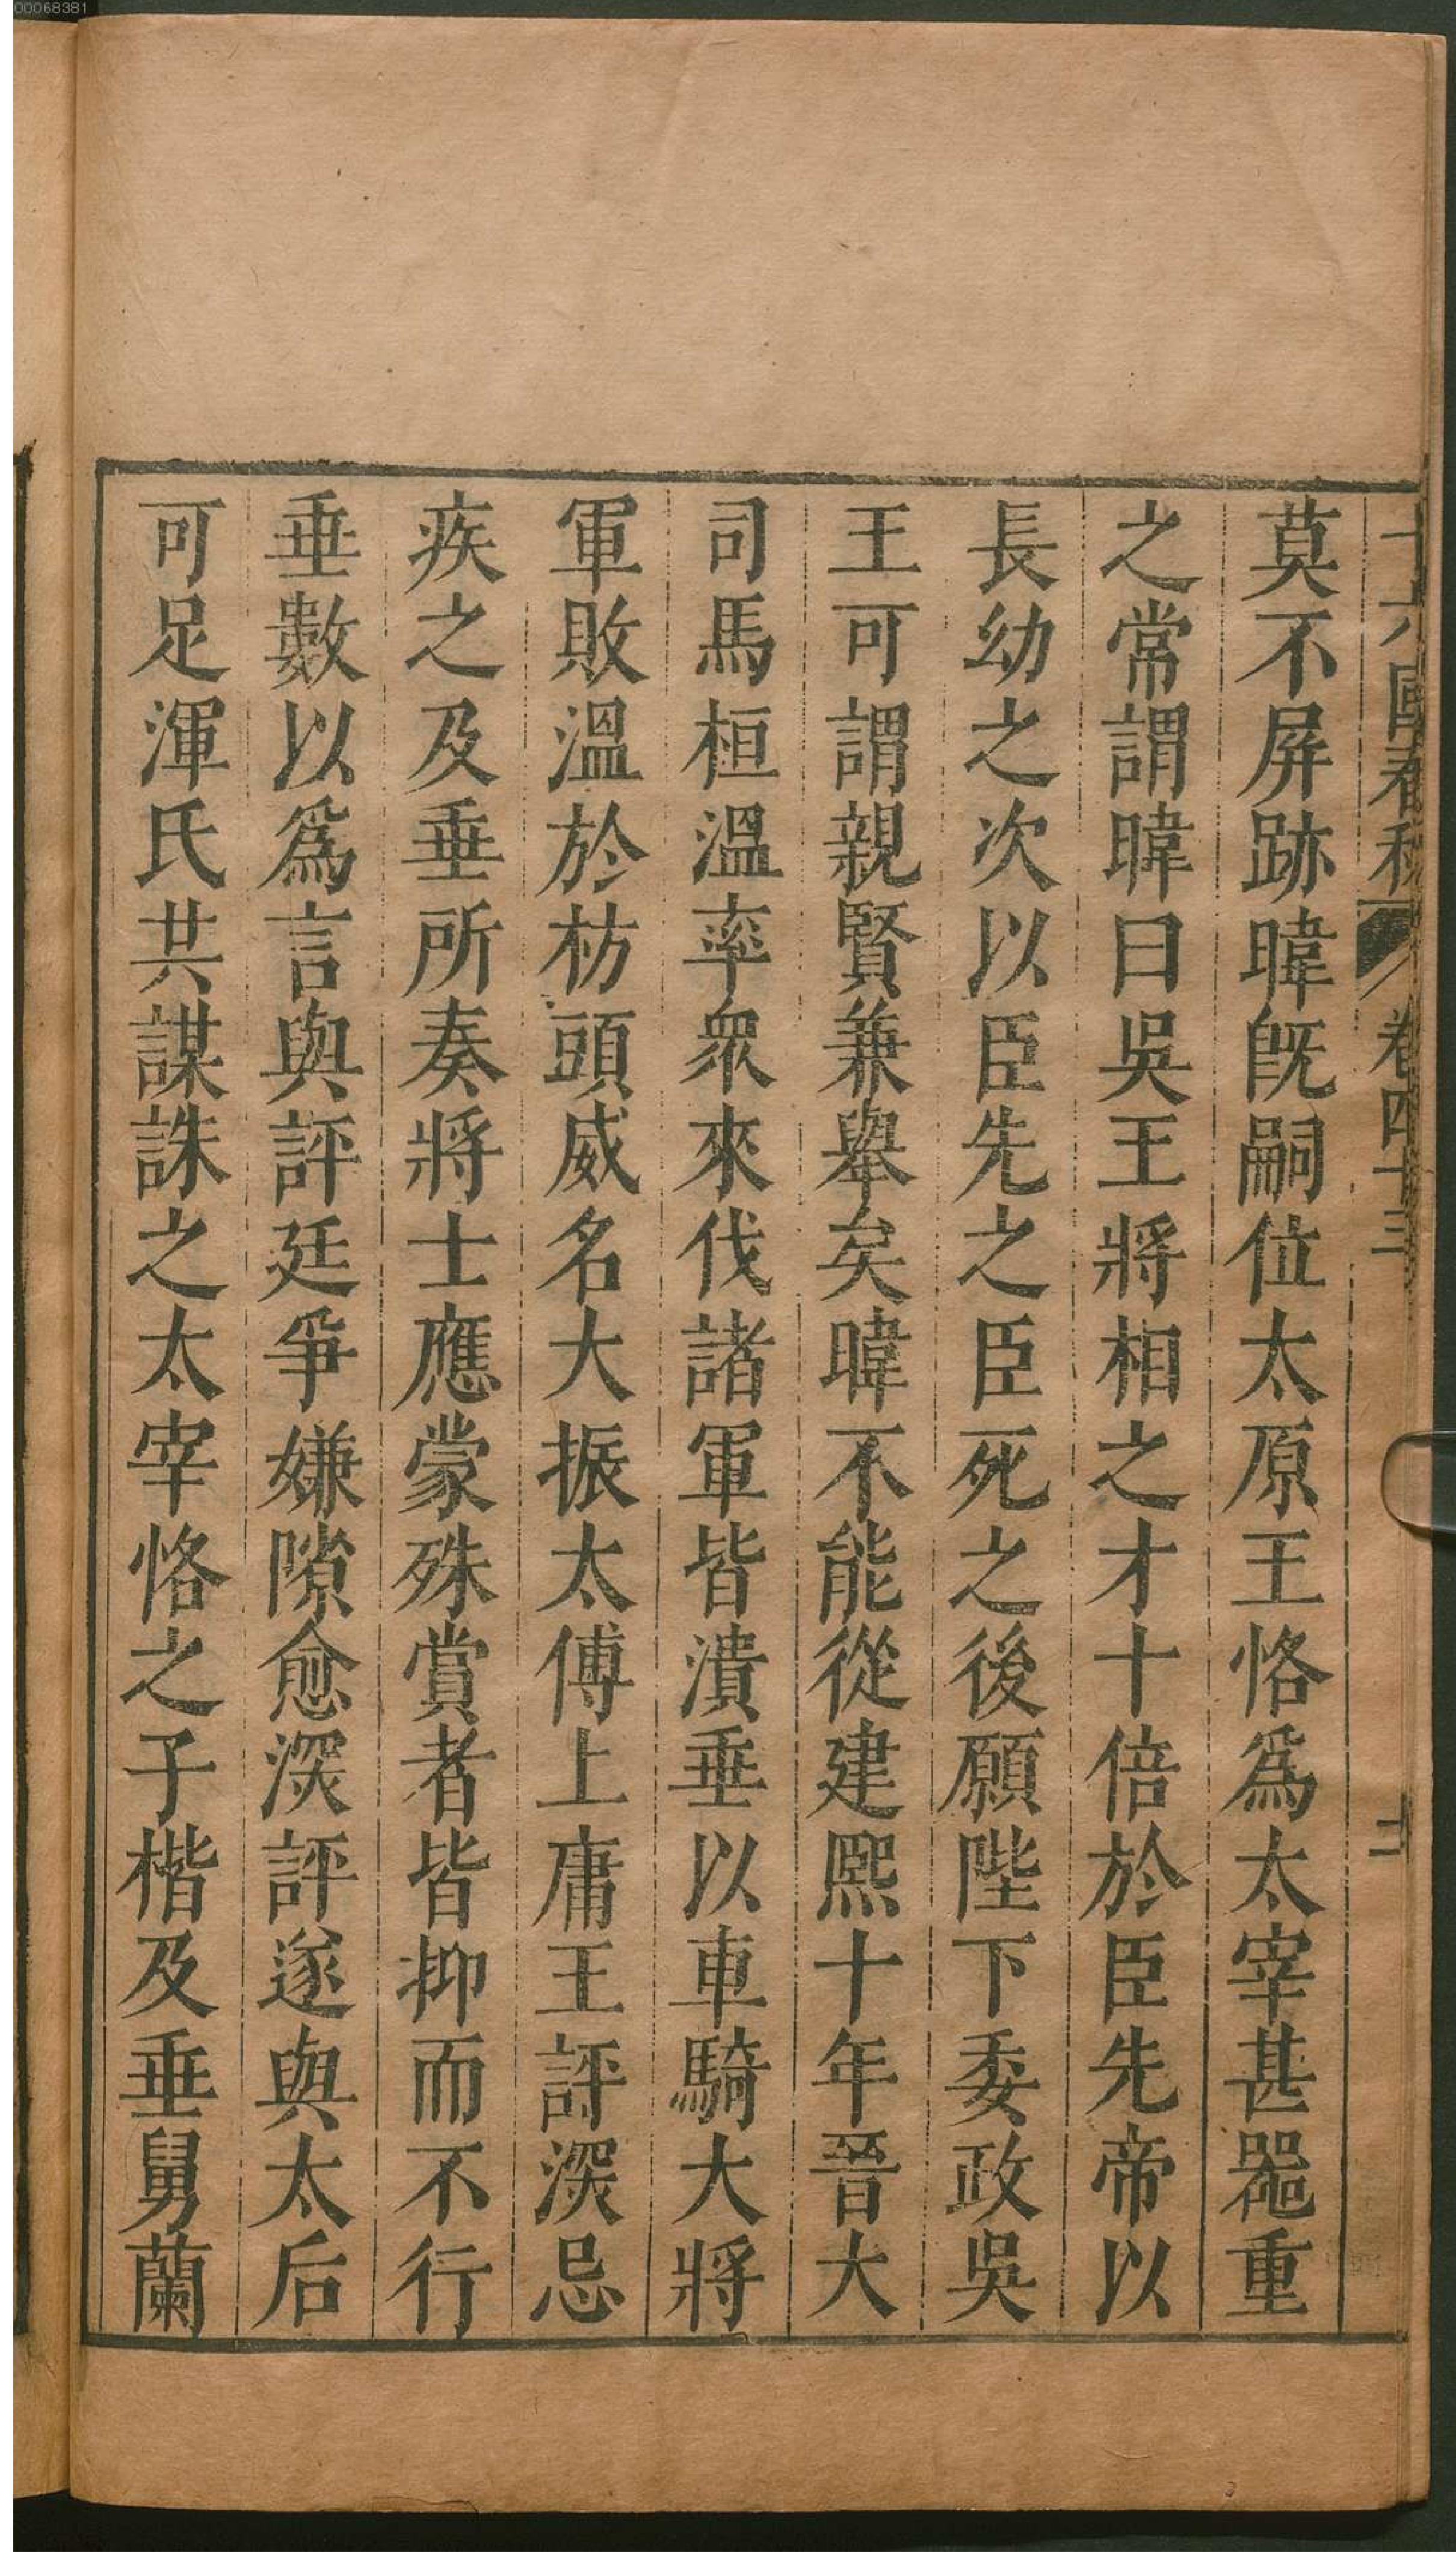 00068381
十六國春秋 卷四十三 十二
莫不屏跡暐旣嗣位太原王恪爲太宰甚噐重
之常謂暐曰吳王將相之才十倍於臣先帝以
長幼之次以臣先之臣死之後願陛下委政吳
王可謂親賢兼舉矣暐不能從建熙十年晉大
司馬桓溫率衆來伐諸軍皆潰垂以車騎大將
軍敗溫於枋頭威名大振太傅上庸王評深忌
疾之及垂所奏將士應蒙殊賞者皆抑而不行
垂數以爲言與評廷爭嫌隙愈深評遂與太后
可足渾氏共謀誅之太宰恪之子楷及垂舅蘭